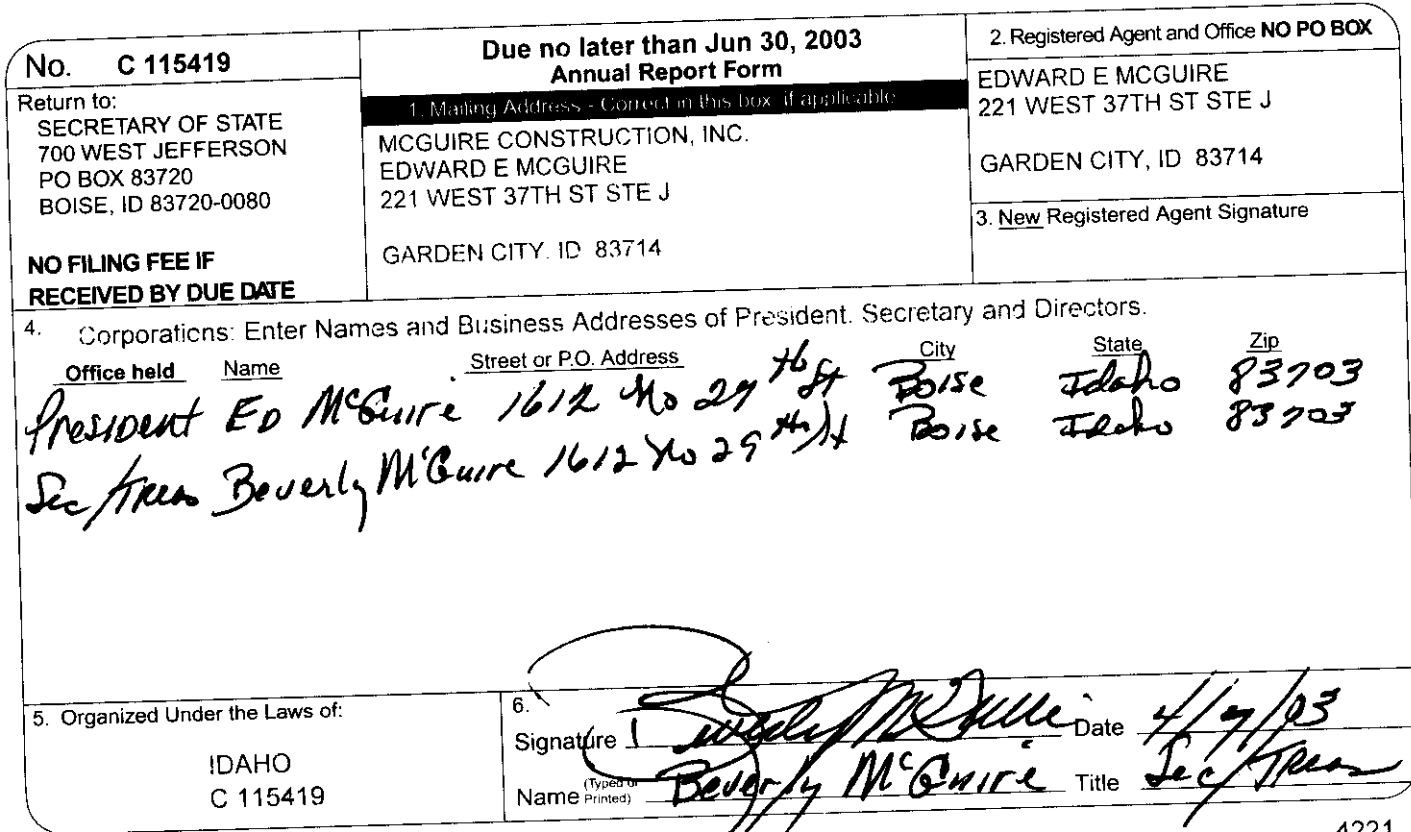 No. C 115419
Return to:
SECRETARY OF STATE
700 WEST JEFFERSON
PO BOX 83720
BOISE, ID 83720-0080
NO FILING FEE IF
RECEIVED BY DUE DATE
Due no later than Jun 30, 2003
Annual Report Form
1. Mailing Address - Correct in this box if applicable
MCGUIRE CONSTRUCTION, INC.
EDWARD E MCGUIRE
221 WEST 37TH ST STE J
GARDEN CITY. ID 83714
2. Registered Agent and Office NO PO BOX
EDWARD E MCGUIRE
221 WEST 37TH ST STE J
GARDEN CITY, ID 83714
3. New Registered Agent Signature
4. Corporations: Enter Names and Business Addresses of President. Secretary and Directors.
Office held Name Street or P.O. Address City State Zip
President Ed McGuire 1612 No 29th St Boise Idaho 83703
Sec/Treas Beverly McGuire 1612 No 29th St Boise Idaho 83703
5. Organized Under the Laws of:
IDAHO
C 115419
6.
Signature Beverly McGuire Date 4/7/03
Name (Typed or Printed) Beverly McGuire Title Sec/Treas
4221